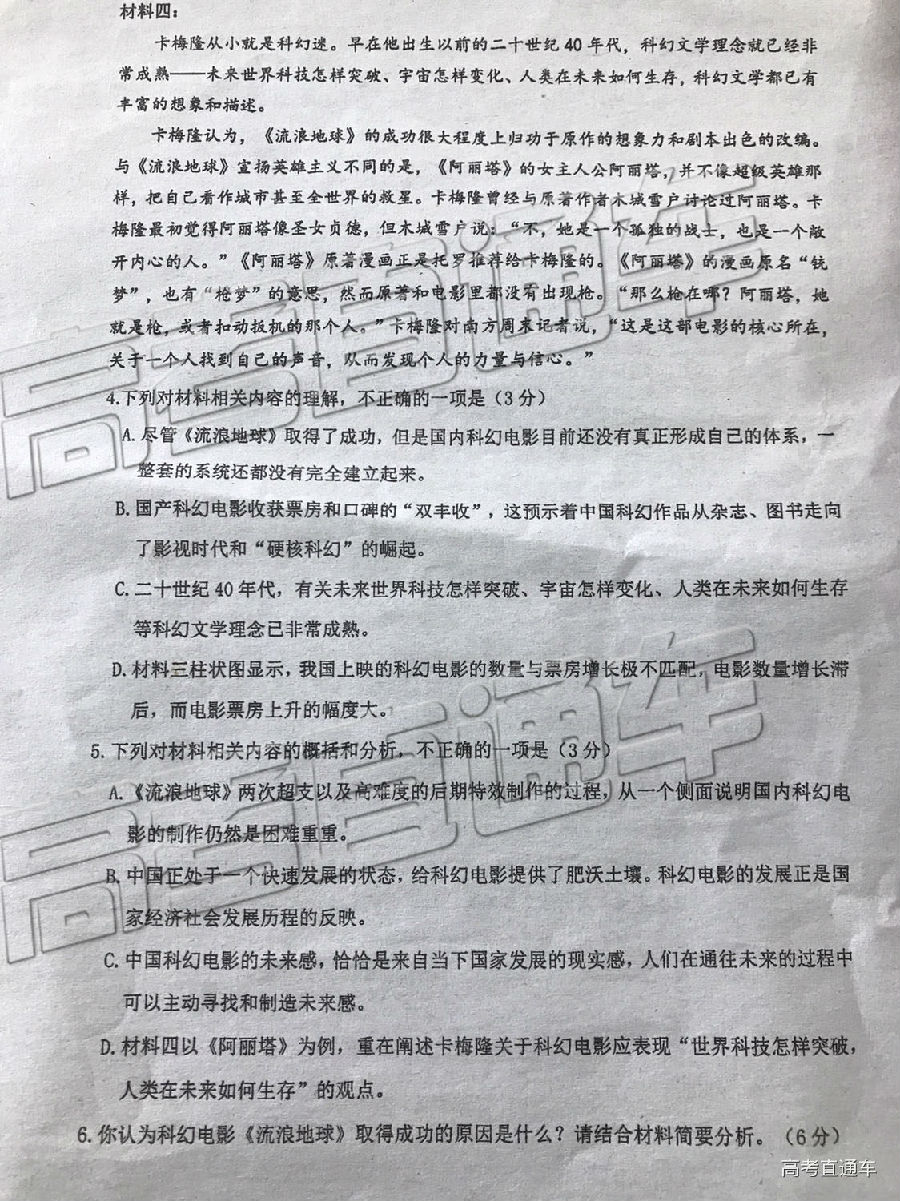 材料四：
卡梅隆从小就是科幻迷。早在他出生以前的二十世纪40年代，科幻文学理念就已经非
常成熟——未来世界科技怎样突破、宇宙怎样变化、人类在未来如何生存，科幻文学都已有
丰富的想象和描述。
卡梅隆认为，《流浪地球》的成功很大程度上归功于原作的想象力和剧本出色的改编。
与《流浪地球》宣扬英雄主义不同的是，《阿丽塔》的女主人公阿丽塔，并不像超级英雄那
样，把自己看作城市甚至全世界的救星。卡梅隆曾经与原著作者木城雪户讨论过阿丽塔。卡
梅隆最初觉得阿丽塔像圣女贞德，但木城雪户说：“不，她是一个孤独的战士，也是一个敞
开内心的人。”《阿丽塔》原著漫画正是托罗推荐给卡梅隆的。《阿丽塔》的漫画原名“铳
梦”，也有“枪梦”的意思，然而原著和电影里都没有出现枪。“那么枪在哪？阿丽塔，她
就是枪，或者扣动扳机的那个人。”卡梅隆对南方周末记者说，“这是这部电影的核心所在，
关于一个人找到自己的声音，从而发现个人的力量与信心。”
4.下列对材料相关内容的理解，不正确的一项是（3分）
A.尽管《流浪地球》取得了成功，但是国内科幻电影目前还没有真正形成自己的体系，一
整套的系统还都没有完全建立起来。
B.国产科幻电影收获票房和口碑的“双丰收”，这预示着中国科幻作品从杂志、图书走向
了影视时代和“硬核科幻”的崛起。
C.二十世纪40年代，有关未来世界科技怎样突破、宇宙怎样变化、人类在未来如何生存
等科幻文学理念已非常成熟。
D.材料三柱状图显示，我国上映的科幻电影的数量与票房增长极不匹配，电影数量增长滞
后，而电影票房上升的幅度大。
5.下列对材料相关内容的概括和分析，不正确的一项是（3分）
A.《流浪地球》两次超支以及高难度的后期特效制作的过程，从一个侧面说明国内科幻电
影的制作仍然是困难重重。
B.中国正处于一个快速发展的状态，给科幻电影提供了肥沃土壤。科幻电影的发展正是国
家经济社会发展历程的反映。
C.中国科幻电影的未来感，恰恰是来自当下国家发展的现实感，人们在通往未来的过程中
可以主动寻找和制造未来感。
D.材料四以《阿丽塔》为例，重在阐述卡梅隆关于科幻电影应表现“世界科技怎样突破，
人类在未来如何生存”的观点。
6.你认为科幻电影《流浪地球》取得成功的原因是什么？请结合材料简要分析。（6分）
高考直通车
高考直通车
高考直通车